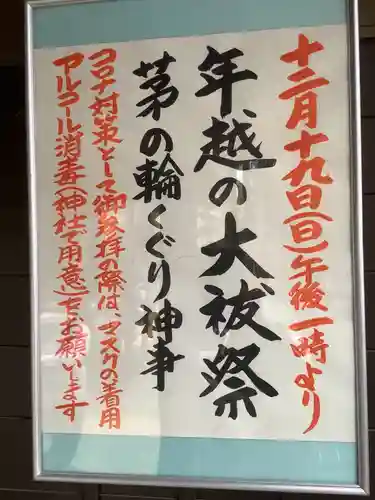 十二月十九日(日)午後一時より
年越の大祓祭
茅の輪くぐり神事
コロナ対策として御参拝の際は、マスクの着用
アルコール消毒(神社で用意)をお願いします